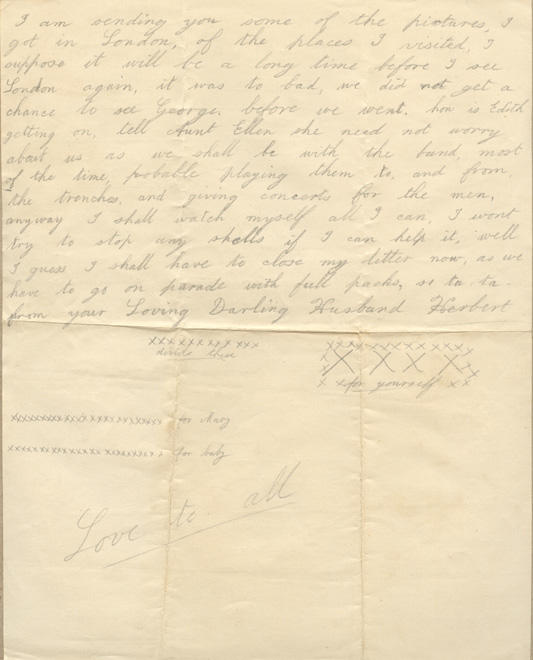 I am sending you some of the pictures, I
got in London, of the places I visited, I
suppose it will be a long time before I see
London again, it was to bad, we did not get a
chance to see George, before we went, how is Edith
getting on, tell Aunt Ellen she need not worry
about us as we shall be with the band, most
of the time, probable playing them to, and from,
the trenches, and giving concerts for the men,
anyway I shall watch myself all I can, I wont
try to stop any shells if I can help it, well
I guess I shall have to close my letter now, as we
have to go on parade with full packs, so ta. ta.
from your Loving Darling Husband Herbert
xxxxxxxxxxx
divide these
xxxxxxxxxxx
X X X X
x x for yourself x x
xxxxxxxxxxxxxxxxxxxx for Mary
xxxxxxxxxxxxxxxxxxxx for baby
Love to all